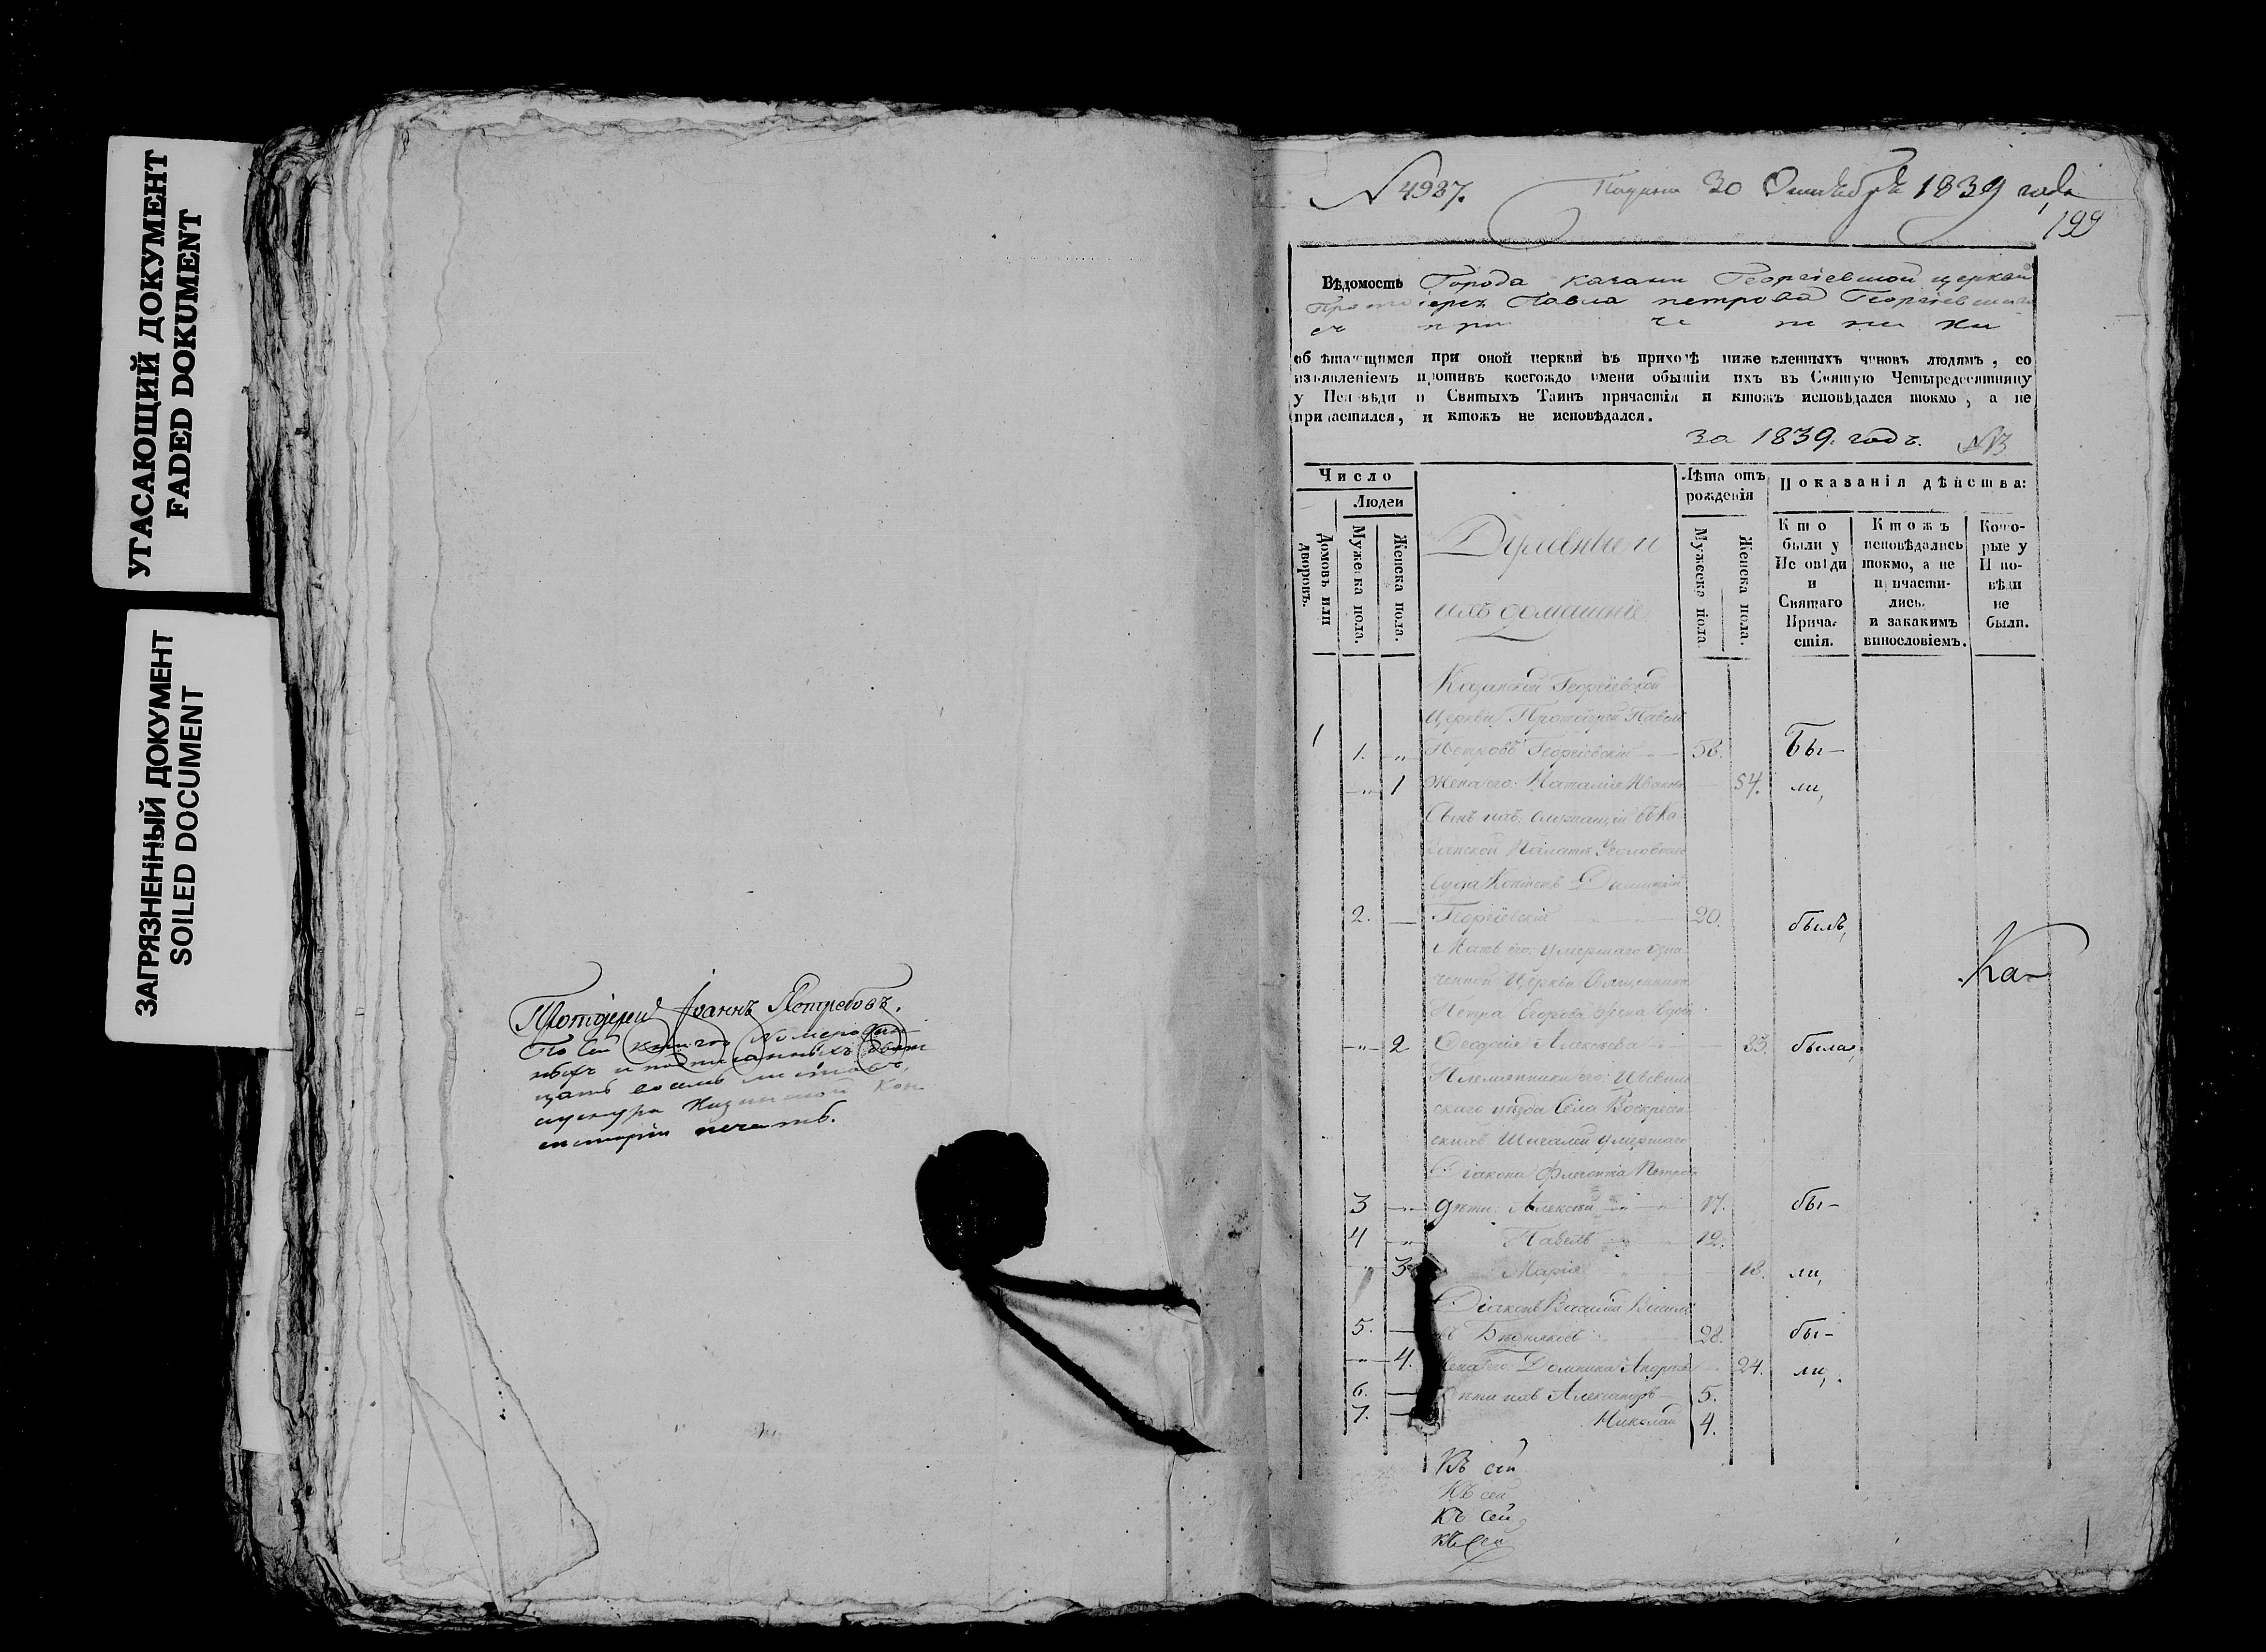 УГАСАЮЩИЙ ДОКУМЕНТ
FADED DOKUMENT
ЗАГРЯЗНЕННЫЙ ДОКУМЕНТ
SOILED DOCUMENT
Протоіерей Іоаннъ Ястребовъ.
По сей книгѣ
листовъ,
Казанской Кон
систоріи печать.
N 4987.
30 Октября 1839 года
199
Вѣдомость Города Казани Георгіевской церкви
Протоіерея Павла Петрова Георгіевскаго
съ при че тни ки
обрѣтающимся при оной церкви въ приходѣ нижеявленныхъ чиновъ людямъ, со
изъявленіемъ противъ коегождо имени обытіи ихъ въ Святую Четыредесятницу
у Исповѣди и Святыхъ Таинъ причастія и ктожъ исповѣдался токмо, а не
причастился, и ктожъ не исповѣдался.
за 1839. годъ.
Число
Людей
Домовъ или дворовъ.
Мужеска пола.
Женска пола.
Духовные и
ихъ домашніе
Лѣта отъ рожденія
Мужеска пола
Женска пола.
Показанія дѣйства:
Кто были у Исповѣди и Святаго Причастія.
Ктожъ исповѣдались токмо, а не причастились. и закакимъ винословіемъ.
Которые у Исповѣди не были.
Казанской Георгіевской
1 Церкви Протоіерей Павелъ
1. „ Петровъ Георгіевскій 58. Бы-
„ 1 Жена его: Наталія Иванова 54. ли,
Сынъ ихъ: служащій въ Ка
занской Палатѣ Уголовнаго
Суда Копіистъ Димитрій
2. Георгіевскій 20. былъ,
Мать его: умершаго озна
ченной Церкви Священника
Петра Егорова жена вдова
„ 2 Ѳеодосія Алексѣева 83. была,
Племянники его: Цывиль
скаго уѣзда Села Воскресен
скихъ Шигалей умершаго
Діакона Флегонта Петрова
3 дѣти: Алексѣй 17. бы-
4 „ Павелъ 12.
„ 3 Марія 18. ли,
Діаконъ Василій Василь
5. въ 28. бы-
„ 4. Жена его: Домника Андреева 24. ли,
6. Дѣти ихъ Александръ 5.
7. Николай 4.
Ка-
Къ сей
Къ сей
Къ сей
Къ сей